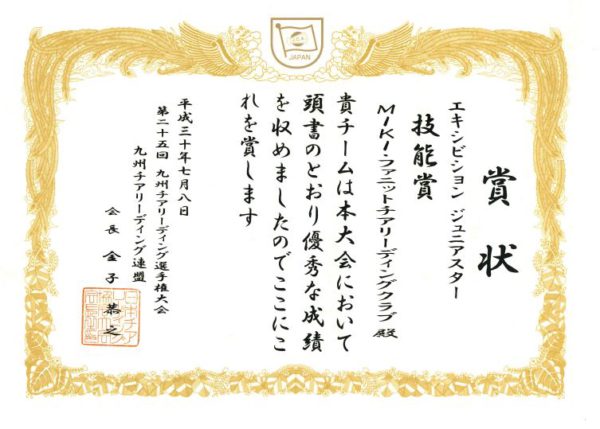 JAPAN
賞状
エキシビション ジュニアスター
技能賞
MIKI・ファニットチアリーディングクラブ 殿
貴チームは本大会において
頭書のとおり優秀な成績
を収めましたのでここにこ
れを賞します
平成三十年七月八日
第二十五回 九州チアリーディング選手権大会
九州チアリーディング連盟
会長 金子 恭之